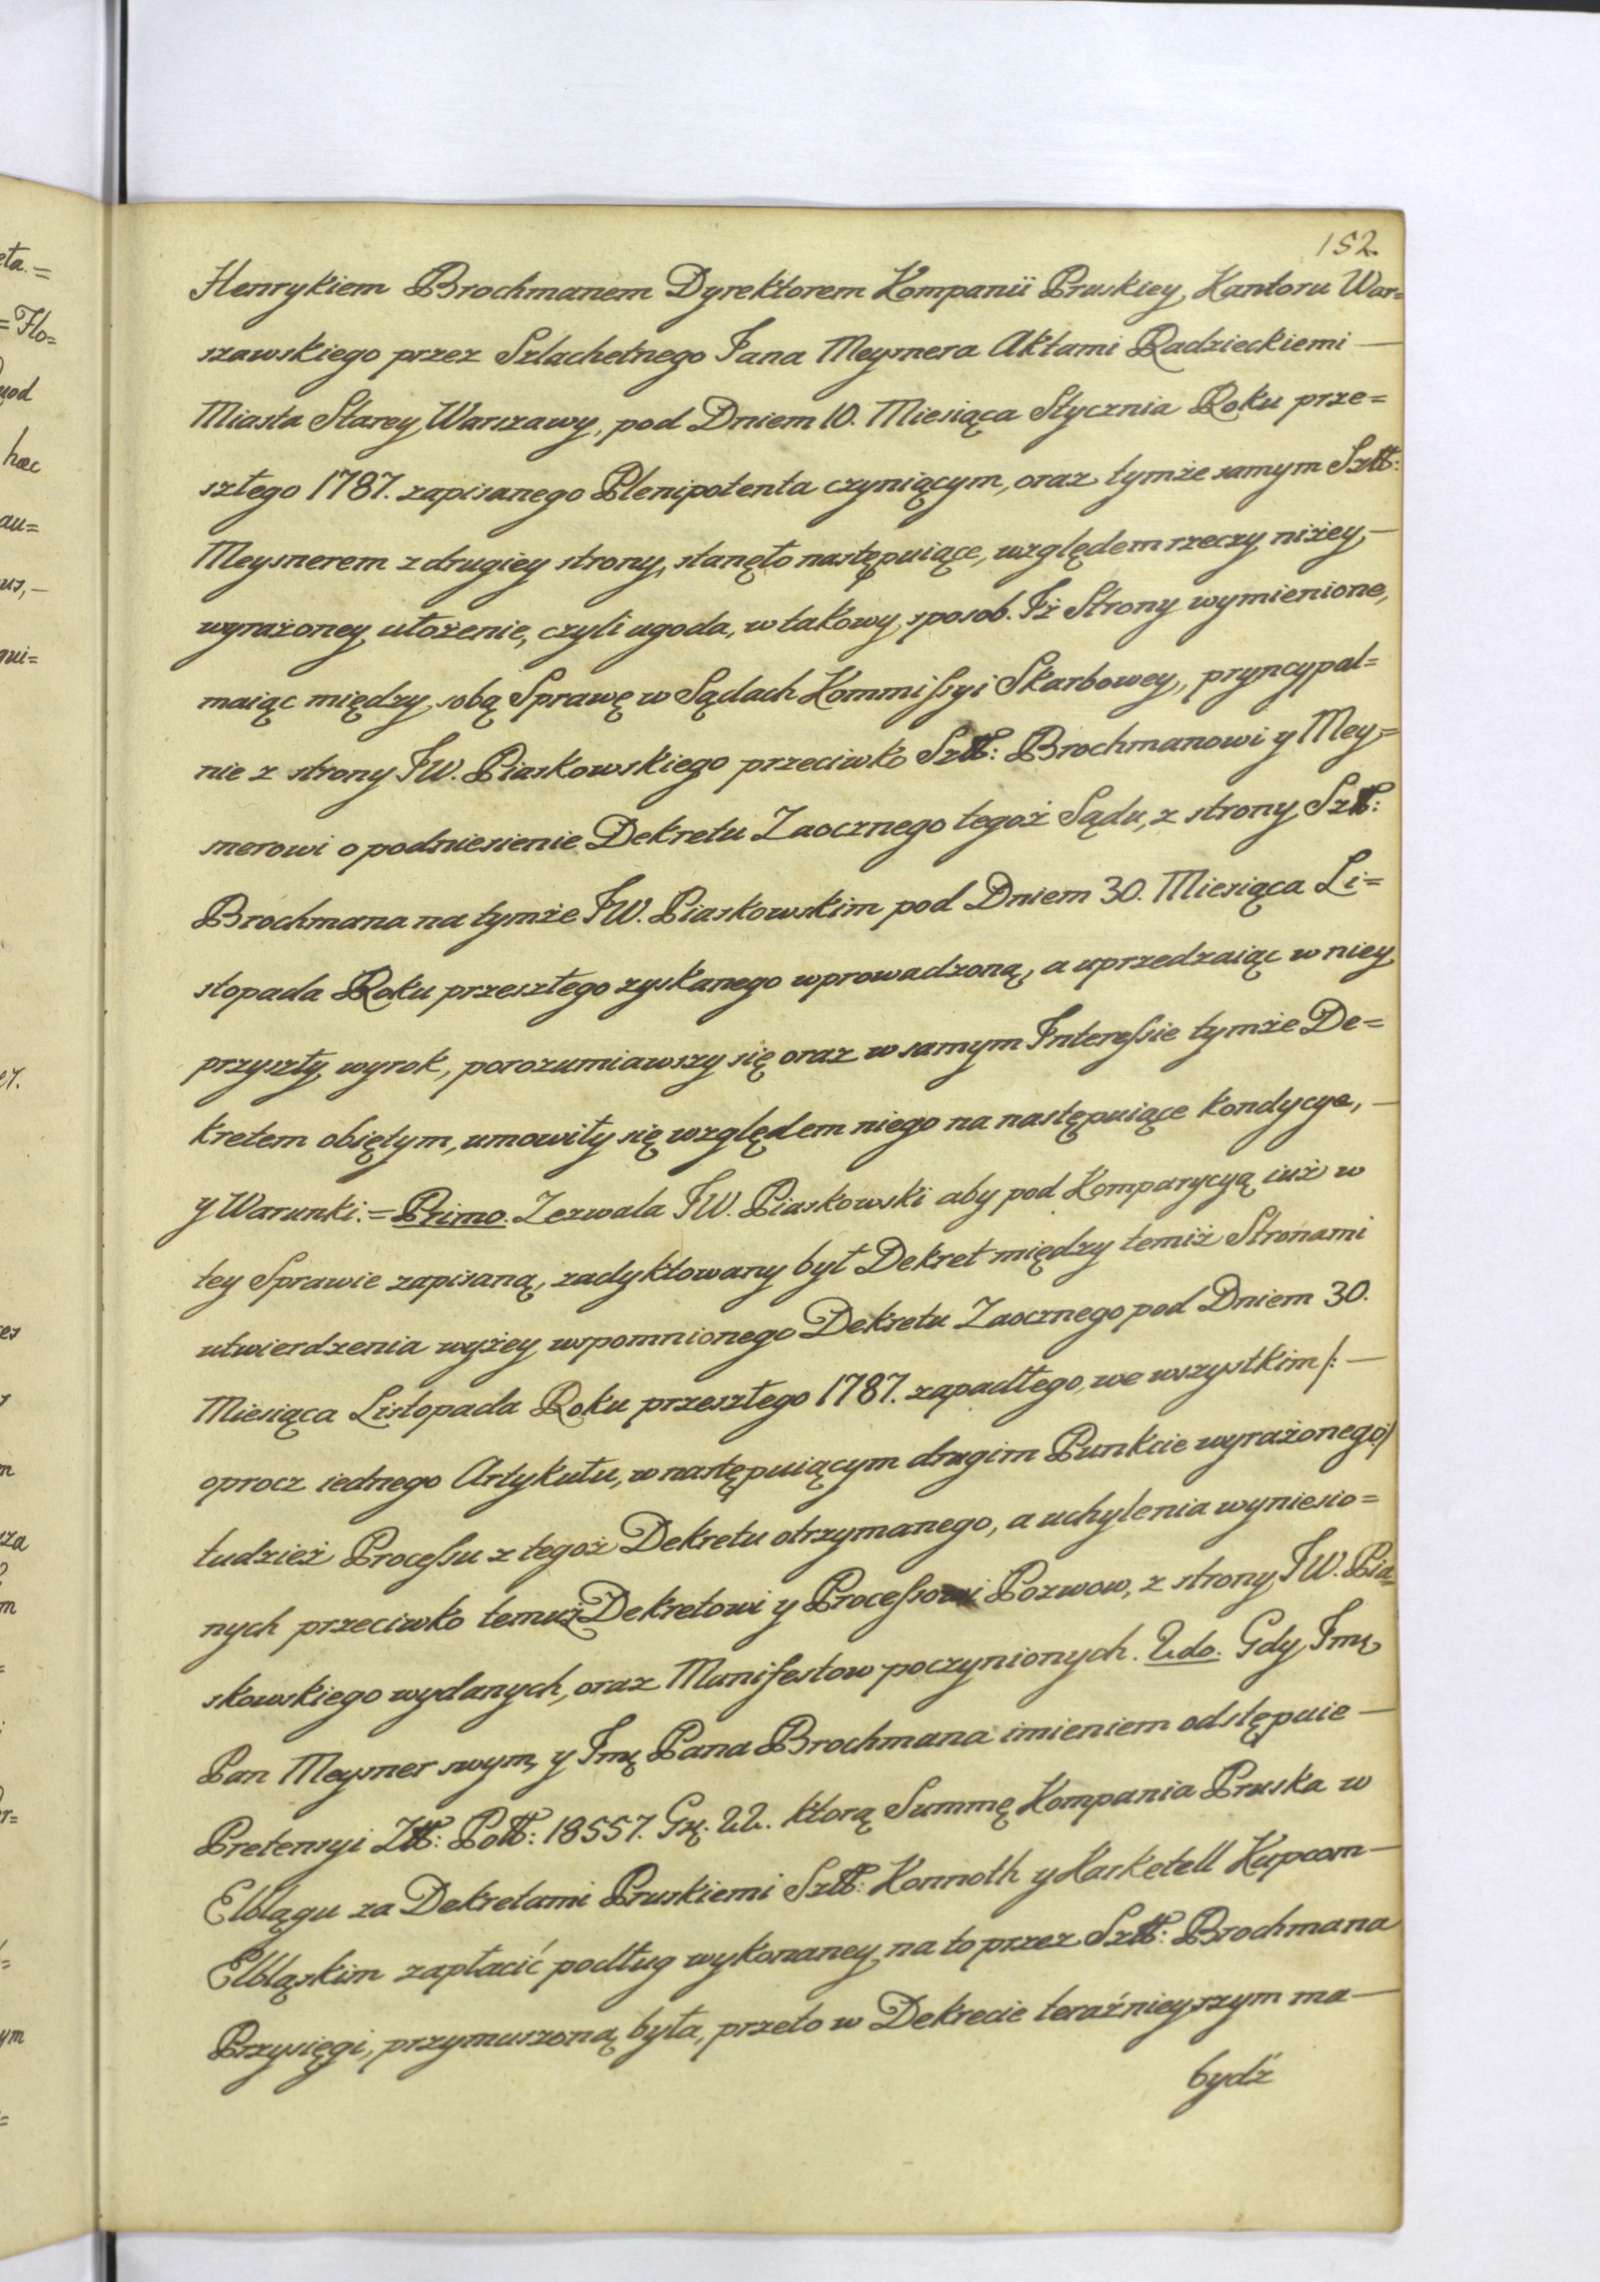 152.
Henrykiem Brochmanem Dyrektorem Kompanii Pruskiey, Kantoru War=
szawskiego przez Szlachetnego Jana Meysnera Aktami Radzieckiemi —
Miasta Starey Warszawy, pod Dniem 10. Miesiąca Stycznia Roku prze=
szłego 1787. zapisanego Plenipotenta czyniącym, oraz tymże samym Szltt:
Meysnerem z drugiey strony, stanęło następuiące, względem rzeczy niżey —
wyrażoney ułożenie, czyli ugoda, w takowy sposob. Iż Strony wymienione,
maiąc między sobą Sprawę w Sądach Kommissyi Skarbowey, pryncypal=
nie z strony JW. Piaskowskiego przeciwko Szltt: Brochmanowi y Mey=
snerowi o podniesienie Dekretu Zaocznego tegoż Sądu, z strony Szltt:
Brochmana na tymże JW. Piaskowskim pod Dniem 30. Miesiąca Li=
stopada Roku przeszłego zyskanego wprowadzoną, a uprzedzaiąc w niey
przyszły wyrok, porozumiawszy się oraz w samym Interessie tymże De=
kretem obiętym, umowiły się względem niego na następuiące kondycye, —
y Warunki. = Primo. Zezwala JW. Piaskowski aby pod Komparycyą iuż w
tey Sprawie zapisaną, zadyktowany był Dekret między temiż Stronami
utwierdzenia wyżey wspomnionego Dekretu Zaocznego pod Dniem 30.
Miesiąca Listopada Roku przeszłego 1787. zapadłego, we wszystkim /: —
oprocz iednego Artykułu, w następuiącym drugim Punkcie wyrażonego :/
tudzież Processu z tegoż Dekretu otrzymanego, a uchylenia wyniesio=
nych przeciwko temuż Dekretowi y Processowi Pozwow, z strony JW. Pia=
skowskiego wydanych, oraz Manifestow poczynionych. 2do. Gdy Imć
Pan Meysner swym, y Imć Pana Brochmana imieniem odstępuie —
Pretensyi Złtt: Poltt: 18557. Gr. 22. ktorą Summę Kompania Pruska w
Elblągu za Dekretami Pruskiemi Szltt: Konnoth y Kasketell Kupcom —
Elbląskim zapłacić podług wykonaney na to przez Szltt: Brochmana
Przysięgi, przymuszoną była, przeto w Dekrecie teraźnieyszym ma —
bydź